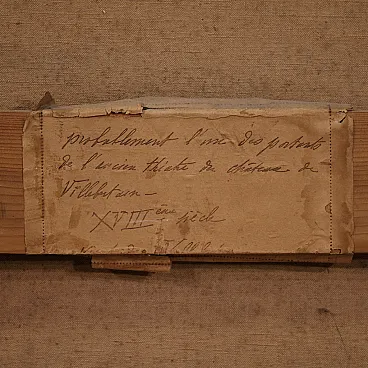 probablement l'une des portants
de l'ancien théatre du château de
Villebertain -
XVIII ème siècle